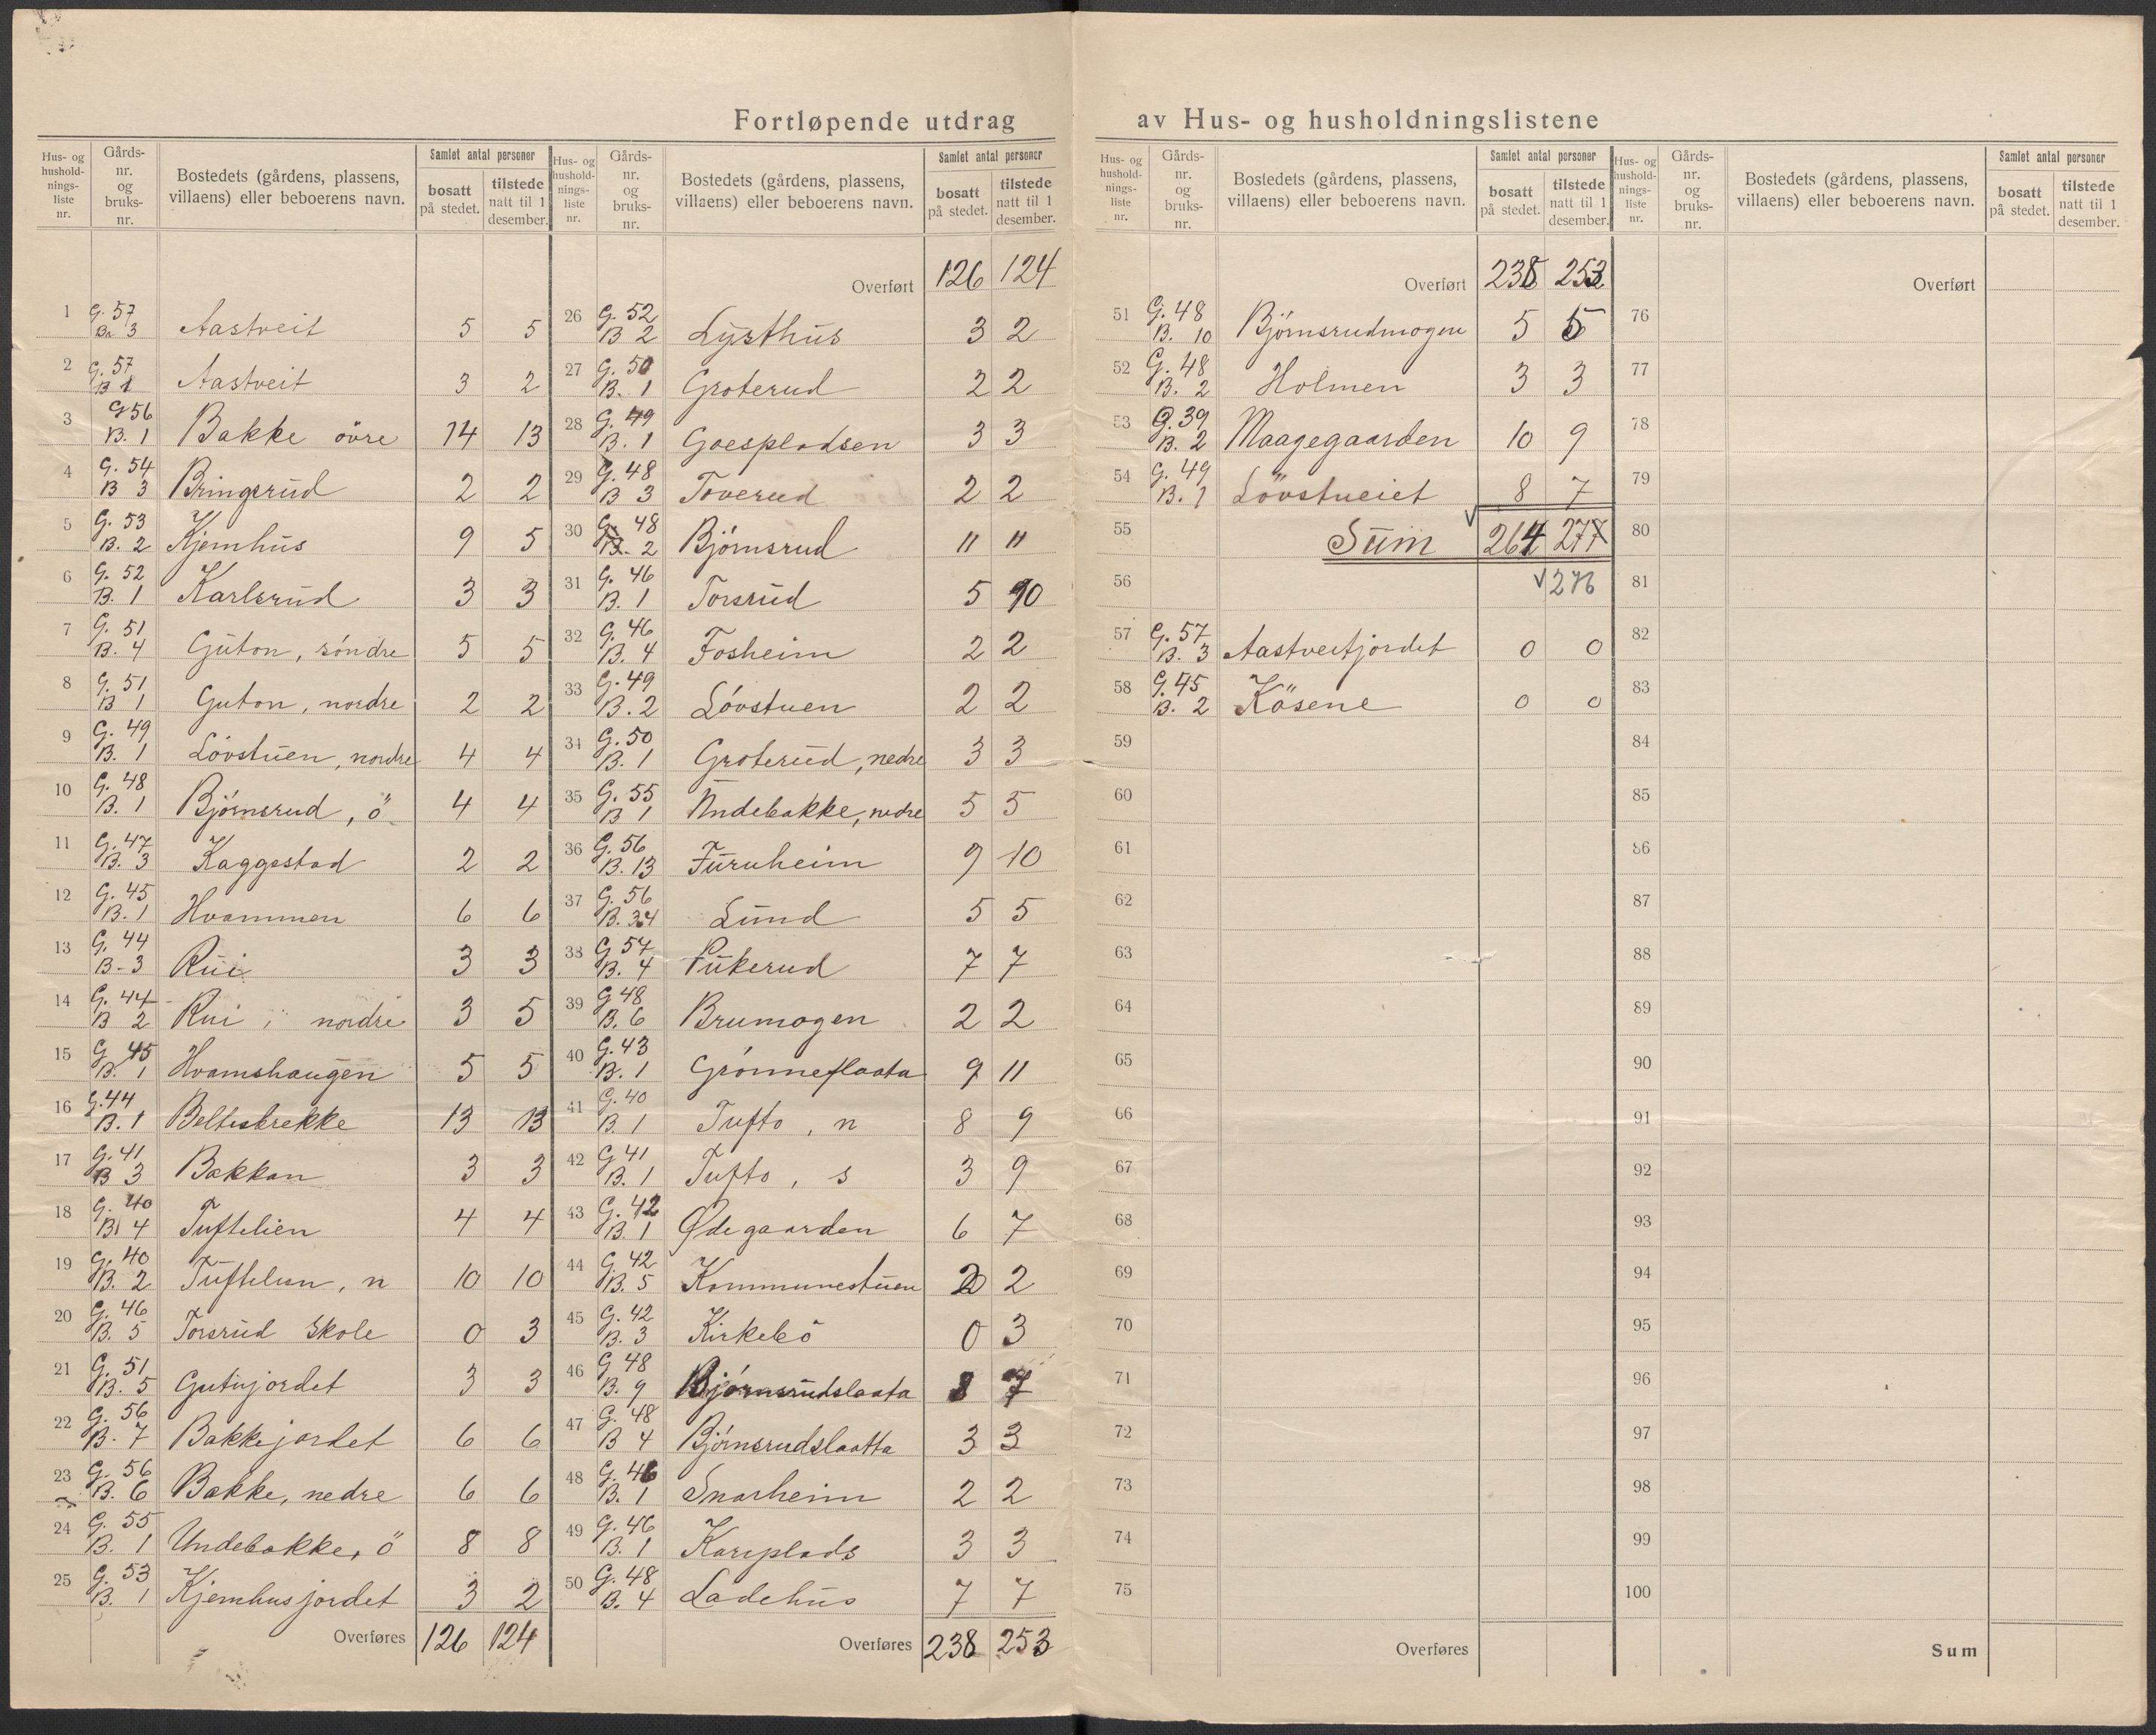 Fortløpende utdrag av Hus- og husholdningslistene
Hus- og husholdnings-liste nr. | Gårds-nr. og bruks-nr. | Bostedets (gårdens, plassens, villaens) eller beboerens navn. | Samlet antal personer | bosatt på stedet. | tilstede natt til 1 desember.
1 G. 57 B. 3 Aastveit 5 5
2 G. 57 B 1 Aastveit 3 2
3 G 56 B. 1 Bakke övre 14 13
4 G. 54 B 3 Bringsrud 2 2
5 G. 53 B. 2 Kjemhus 9 5
6 G. 52 B. 1 Karlsrud 3 3
7 G. 51 B. 4 Guton, söndre 5 5
8 G. 51 B 1 Guton, nordre 2 2
9 G. 49 B. 1 Lövstuen, nordre 4 4
10 G. 48 B. 1 Björnsrud, ö 4 4
11 G. 47 B. 3 Kaggestad 2 2
12 G. 45 B. 1 Hvammen 6 6
13 G. 44 B. 3 Rui 3 3
14 G. 44 B 2 Rui, nordre 3 5
15 G 45 B. 1 Hvamshaugen 5 5
16 G. 44 B. 1 Beltesbrekke 13 13
17 G. 41 B 3 Bakkan 3 3
18 G. 40 B 4 Tuftelien 4 4
19 G. 40 B. 2 Tuftelien, n 10 10
20 G. 46 B. 5 Torsrud Skole 0 3
21 G. 51 B. 5 Gutujordet 3 3
22 G. 56 B. 7 Bakkejordet 6 6
23 G. 56 B. 6 Bakke, nedre 6 6
24 G. 55 B. 1 Undebakke, ö 8 8
25 G. 53 B. 1 Kjemhusjordet 3 2
Overføres 126 124
Hus- og husholdnings-liste nr. | Gårds-nr. og bruks-nr. | Bostedets (gårdens, plassens, villaens) eller beboerens navn. | Samlet antal personer | bosatt på stedet. | tilstede natt til 1 desember.
Overført 126 124
26 G. 52 B 2 Lysthus 3 2
27 G. 50 B. 1 Groterud 2 2
28 G. 49 B. 1 Goespladsen 3 3
29 G. 48 B 3 Toverud 2 2
30 G. 48 B. 2 Björnsrud 11 11
31 G. 46 B. 1 Torsrud 5 10
32 G. 46 B. 4 Fosheim 2 2
33 G. 49 B. 2 Lövstuen 2 2
34 G. 50 B. 1 Groterud, nedre 3 3
35 G. 55 B 1 Undebakke, nedre 5 5
36 G. 56 B. 13 Furuheim 9 10
37 G. 56 B. 34 Lund 5 5
38 G 54 B. 4 Pukerud 7 7
39 G 48 B. 6 Brumogen 2 2
40 G. 43 B. 1 Grönneflaata 9 11
41 G. 40 B. 1 Tufto, n 8 9
42 G 41 B. 1 Tufto, s 3 9
43 G. 42 B. 1 Ødegaarden 6 7
44 G. 42 B. 5 Kommunestuen 2 2
45 G. 42 B. 3 Kirkebö 0 3
46 G 48 B. 9 Björnsrudslaata 8 7
47 G. 48 B 4 Björnsrudslaatta 3 3
48 G. 46 B. 1 Snarheim 2 2
49 G. 46 B. 1 Karsplads 3 3
50 G. 48 B. 4 Ladehus 7 7
Overføres 238 253
Hus- og husholdnings-liste nr. | Gårds-nr. og bruks-nr. | Bostedets (gårdens, plassens, villaens) eller beboerens navn. | Samlet antal personer | bosatt på stedet. | tilstede natt til 1 desember.
Overført 238 253
51 G. 48 B. 10 Björnsrudmogen 5 5
52 G. 48 B. 2 Holmen 3 3
53 G. 39 B. 2 Maagegaarden 10 9
54 G. 49 B. 1 Lövstueiet 8 7
55 Sum 264 277
56 276
57 G. 57 B. 3 Aastveitjordet 0 0
58 G. 45 B. 2 Käsene 0 0
59
60
61
62
63
64
65
66
67
68
69
70
71
72
73
74
75
Overføres
Hus- og husholdnings-liste nr. | Gårds-nr. og bruks-nr. | Bostedets (gårdens, plassens, villaens) eller beboerens navn. | Samlet antal personer | bosatt på stedet. | tilstede natt til 1 desember.
Overført
76
77
78
79
80
81
82
83
84
85
86
87
88
89
90
91
92
93
94
95
96
97
98
99
100
Sum